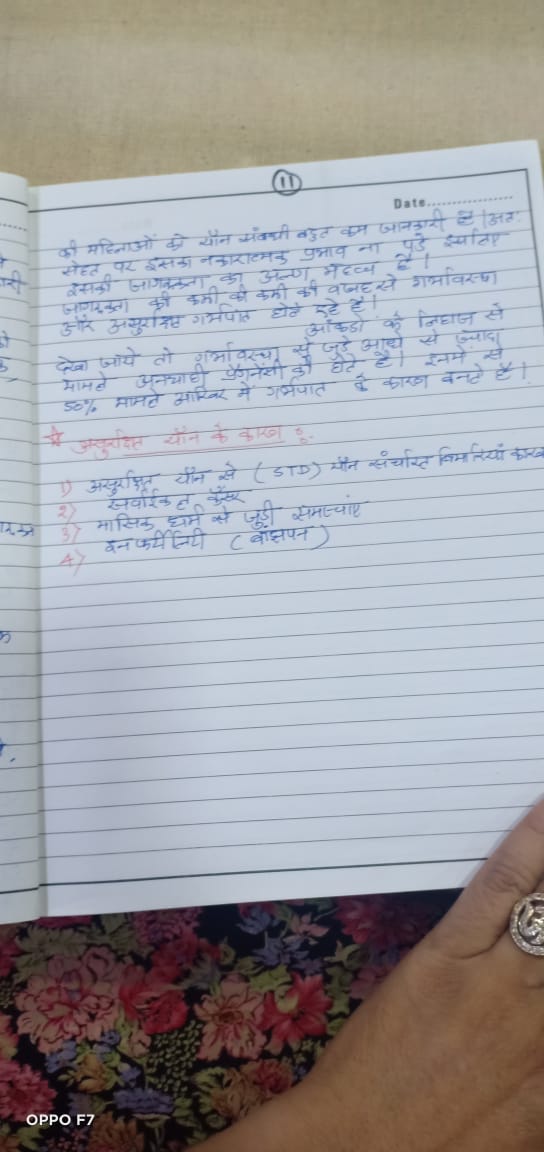 11
Date
की महिलाओं को यौन संबंधी बहुत कम जानकारी है। अतः
सेहत पर इसका नकारात्मक प्रभाव ना पड़े इसलिए
इसकी जागरूकता का अपना महत्व है।
जागरूकता की कमी की कमी की वजह से गर्भावस्था
और असुरक्षित गर्भपात होते रहे है।
आंकडो के लिहाज से
देखा जाये तो गर्भावस्था से जुड़े आधे से ज़्यादा
मामले अनचाही प्रेगनेंसी के होते है। इनमे से
50% मामले आखिर मे गर्भपात के कारण बनते है।
असुरक्षित यौन के कारण :-
1) असुरक्षित यौन से (STD) यौन संचारित बिमारियाँ
2) सर्वाईकल कैंसर
3) मासिक धर्म से जुड़ी समस्याएं
4) इनफर्टीलिटी (बांझपन)
OPPO F7